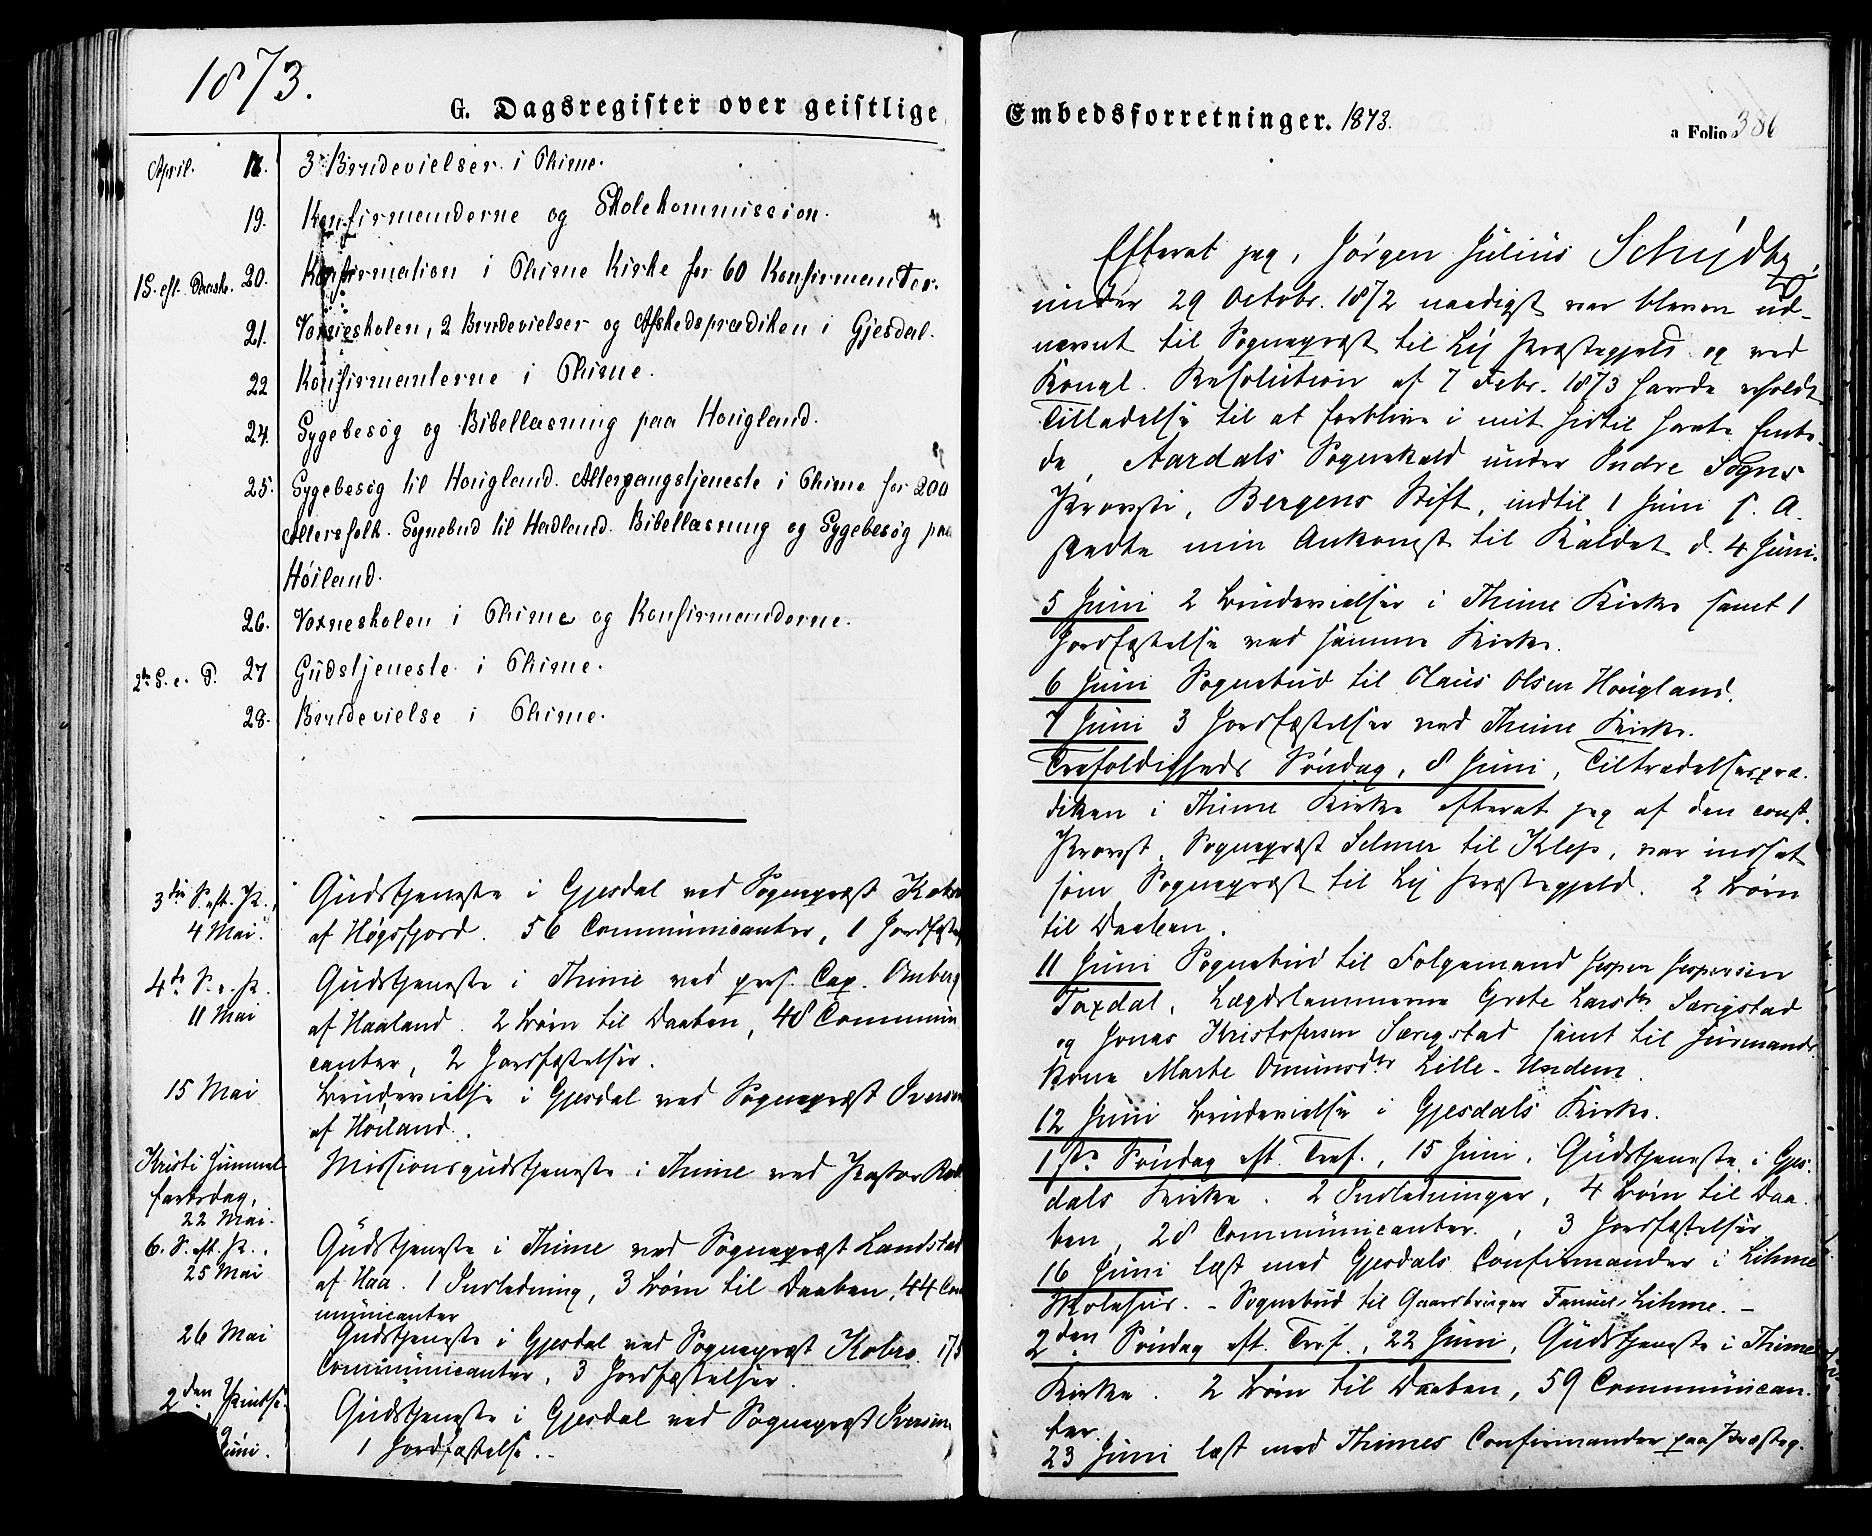 1873.
G. Dagsregister over geistlige
April. 18. 3 Brudevielser i Thime.
19. Konfirmanderne og Skolekommission.
1 S. eft. Paaske. 20. Konfirmation i Thime Kirke for 60 Konfirmander.
21. Voxneskolen, 2 Brudevielser og Afskedsprædiken i Gjesdal.
22 Konfirmanterne i Thime.
24. Sygebesøg og Bibellæsning paa Hougland.
25. Sygebesøg til Hougland. Altergangstjeneste i Thime for 200
Altersfolk. Sognebud til Hadland. Bibellæsning og Sygebesøg paa
Høiland.
26. Voxneskolen i Thime og Konfirmanderne.
2den S. e. P. 27 Gudstjeneste i Thime.
28. Brudevielse i Thime.
3die S. eft. P., Gudstjeneste i Gjesdal ved Sognepræst
4 Mai. af Høgsfjord. 56 Communicanter, 1 Jordfæst
4de S. e. P. Gudstjeneste i Thime ved pers. Cap. Omberg
11 Mai af Haaland. 2 Børn til Daaben, 48 Communi
canter, 2 Jordfæstelser.
15 Mai Brudevielse i Gjesdal ved Sognepræst Iversen
af Høiland.
Kristi Himmel Missionsgudstjeneste i Thime ved Pastor
fartsdag,
22 Mai.
6. S. eft. P., Gudstjeneste i Thime ved Sognepræst Landstad
25 Mai af Haa. 1 Indledning, 3 Børn til Daaben, 44 Com
municanter
26 Mai Gudstjeneste i Gjesdal ved Sognepræst Kobro.
Communicanter, 3 Jordfæstelser.
2den Pindse Gudstjeneste i Gjesdal ved Sognepræst Iversen
Juni. 1 Jordfæstelse.
Embedsforretninger. 1873.
a Folio 386
Efterat jeg, Jørgen Julius Schydtz,
under 29 Octobr. 1872 naadigst var bleven ud-
nævnt til Sognepræst til Ly Præstegjeld og ved
Kongl. Resolution af 7 Febr. 1873 havde erholdt
Tilladelse til at forblive i mit hidtil havte Embe-
de, Aardals Sognekald under Indre Sogns
Provsti, Bergens Stift, indtil 1 Juni s. A.
skedte min Ankomst til Kaldet d. 4 Juni.
5 Juni 2 Brudevielser i Thime Kirke samt 1
Jordfæstelse ved samme Kirke.
6 Juni Sognebud til Claus Olsen Hougland.
7 Juni 3 Jordfæstelser ved Thime Kirke.
Trefoldigheds Søndag, 8 Juni, Tiltrædelsespræ-
diken i Thime Kirke efterat jeg af den const.
Provst, Sognepræst Selmer til Klep, var indsat
som Sognepræst til Ly Præstegjeld. 2 Børn
til Daaben.
11 Juni Sognebud til Folgemand Jesper Jespersen
Taxdal, Lægdslemmerne Grete Larsdtr Særigstad
og Jonas Kristofersen Særigstad samt til Huusmands
Kone Marte Omunsdtr Lille-Undem
12 Juni Brudevielse i Gjesdals Kirke.
1ste Søndag eft. Tref., 15 Juni, Gudstjeneste i Gjes-
dals Kirke. 2 Indledninger, 4 Børn til Daa-
ben, 28 Communicanter, 3 Jordfæstelser
16 Juni læst med Gjesdals Confirmander i Lihme
Skolehus. - Sognebud til Gaardbruger Lihme. -
2den Søndag eft. Tref., 22 Juni, Gudstjeneste i Thime
Kirke. 2 Børn til Daaben, 59 Communican-
ter.
23 Juni læst med Thimes Confirmander paa Præsteg.